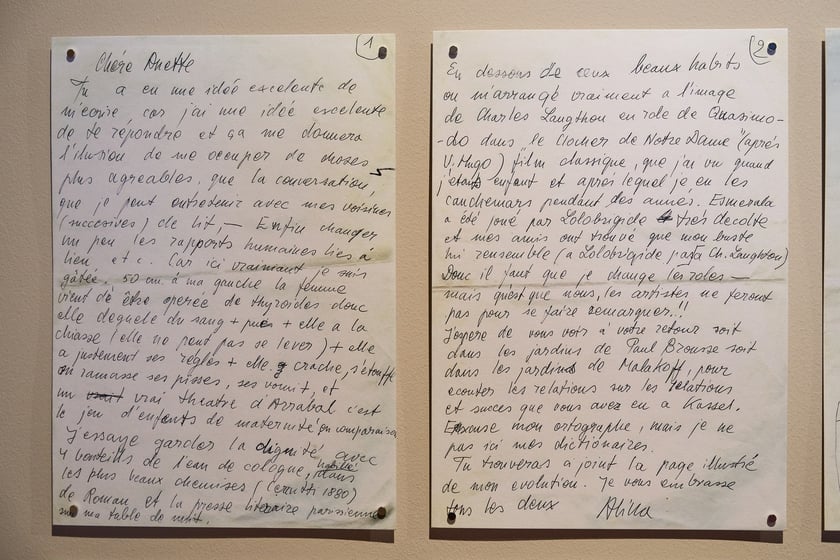 1
Chére Anette
Tu a eu une ideé excelente de
m'ecrire, car j'ai une ideé excelente
de te répondre et ça me donnera
l'illusion de me occuper de choses
plus agreables, que la conversation,
que je peut entretenir avec mes voisines
(succesives) de lit, — Enfin changer
un peu les rapports humaines lies à
lieu, etc. Car ici vraiment je suis
gâtée. 50 cm. à ma gauche la femme
vient de être operée de thyroides donc
elle degueule du sang + pues + elle a la
chiasse (elle ne peut pas se lever) + elle
a justement ses règles + elle crache, s'étouffe
on ramasse ses pisses, ses vomit, et
un vrai theatre d'Arrabal c'est
le jeu d'enfants de maternité en comparaison
J'essaye garder la dignité avec
4 bouteils de l'eau de cologne, habillé dans
les plus beaux chemises (cerutti 1880)
de Roman et la presse literaire parisienne
sur ma table de nuit.
2
En dessous de ceux beaux habits
on m'arrangé vraiment a l'image
de Charles Langthon en role de Quasimo-
-do dans le Clocher de Notre Dame "(aprés
V. Hugo) film classique, que j'ai vu quand
j'etais enfant et aprés lequel je en les
cauchemars pendant des anneés. Esmeralda
a été joué par Lolobrigide trés decolte
et mes amis ont trouvé que mon buste
lui rensemble (a Lolobrigide pas a Ch. Langthon)
Donc il faut que je change les roles —
mais qu'est que nous, les artistes ne feront
pas pour se faire remarquer!!
J'espere de vous vois à votre retour soit
dans les jardins de Paul Brousse soit
dans les jardins de Malakoff, pour
ecouter les relations sur les relations
et succes que vous avez eu a Kassel.
Excuse mon ortographe, mais je ne
pas ici mes dictionaires.
Tu trouveras a joint la page illustré
de mon evolution. Je vous embrasse
tous les deux Alina